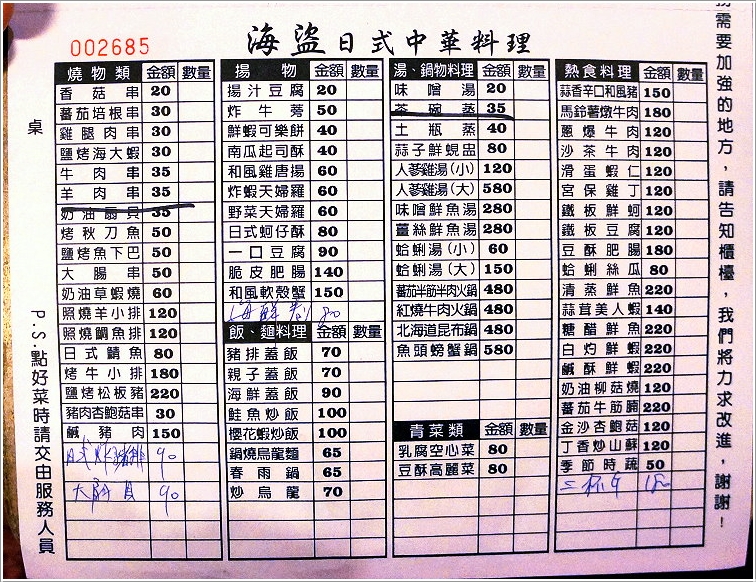 002685
海盜日式中華料理
燒物類 金額 數量
香菇串 20
番茄培根串 30
雞腿肉串 30
鹽烤海大蝦 30
牛肉串 35
羊肉串 35
奶油扇貝 35
烤秋刀魚 50
鹽烤魚下巴 50
大腸串 50
奶油草蝦燒 60
照燒羊小排 120
照燒鯛魚排 120
日式鯖魚 80
烤牛小排 180
鹽烤松板豬 220
豬肉杏鮑菇串 30
鹹豬肉 150
日式炸豬排 90
大干貝 90
揚物 金額 數量
揚汁豆腐 20
炸牛蒡 50
鮮蝦可樂餅 40
南瓜起司酥 40
和風雞唐揚 60
炸蝦天婦羅 60
野菜天婦羅 60
日式蚵仔酥 80
一口豆腐 90
脆皮肥腸 140
和風軟殼蟹 150
海鮮卷 80
飯、麵料理 金額 數量
豬排蓋飯 70
親子蓋飯 70
海鮮蓋飯 90
鮭魚炒飯 100
櫻花蝦炒飯 100
鍋燒烏龍麵 65
春雨鍋 65
炒烏龍 70
湯、鍋物料理 金額 數量
味噌湯 20
茶碗蒸 35
土瓶蒸 40
蒜子鮮蜆盅 80
人蔘雞湯(小) 120
人蔘雞湯(大) 580
味噌鮮魚湯 280
薑絲鮮魚湯 280
蛤蜊湯(小) 60
蛤蜊湯(大) 150
蕃茄半筋半肉火鍋 480
紅燒牛肉火鍋 480
北海道昆布鍋 480
魚頭螃蟹鍋 580
青菜類 金額 數量
乳腐空心菜 80
豆酥高麗菜 80
熱食料理 金額 數量
蒜香辛口和風豬 150
馬鈴薯燉牛肉 180
蔥爆牛肉 120
沙茶牛肉 120
滑蛋蝦仁 120
宮保雞丁 120
鐵板鮮蚵 120
鐵板豆腐 120
豆酥肥腸 180
蛤蜊絲瓜 80
清蒸鮮魚 220
蒜茸美人蝦 140
糖醋鮮魚 220
白灼鮮蝦 220
鹹酥鮮蝦 220
奶油柳菇燒 120
蕃茄牛筋腩 220
金沙杏鮑菇 120
丁香炒山蘇 120
季節時蔬 50
三杯
桌
P.S.點好菜時請交由服務人員
務需要加強的地方，請告知櫃檯，我們將力求改進，謝謝！